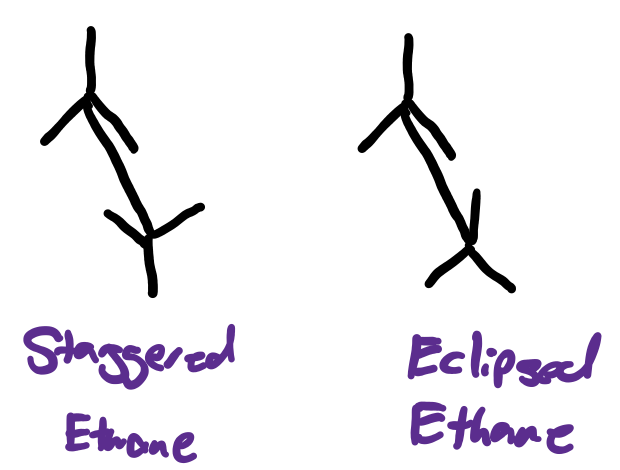 Staggered
Ethane
Eclipsed
Ethane